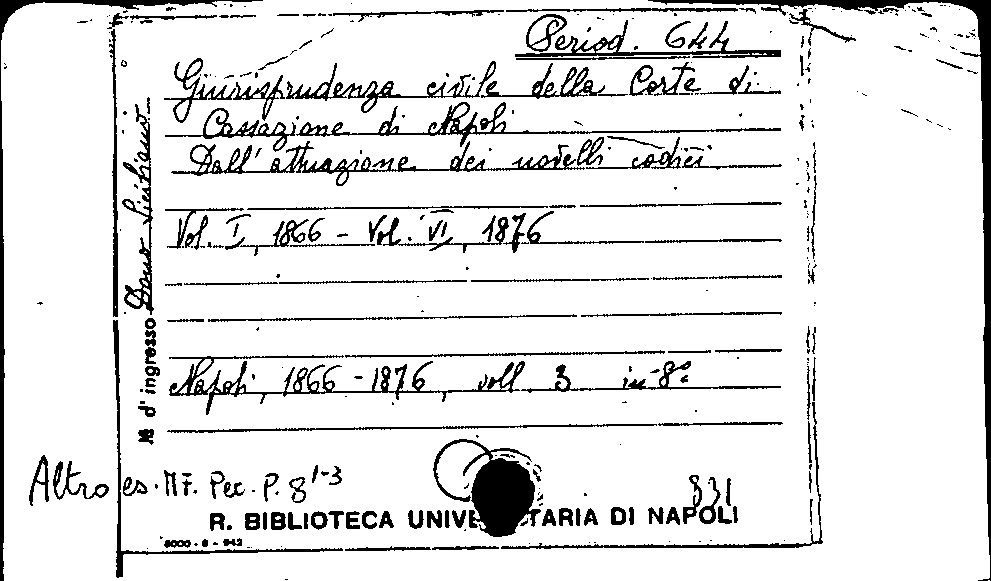 Period. 644
Giurisprudenza civile della Corte di
Cassazione di Napoli.
Dall'attuazione dei novelli codici
Vol. I, 1866 - Vol. VI, 1876
Napoli, 1866 - 1876, voll. 3 in-8°
N. d'ingresso Dono Siciliano
Altro es. MF. Pec. P. 8 1-3
831
R. BIBLIOTECA UNIVE TARIA DI NAPOLI
5000 - 6 - 942